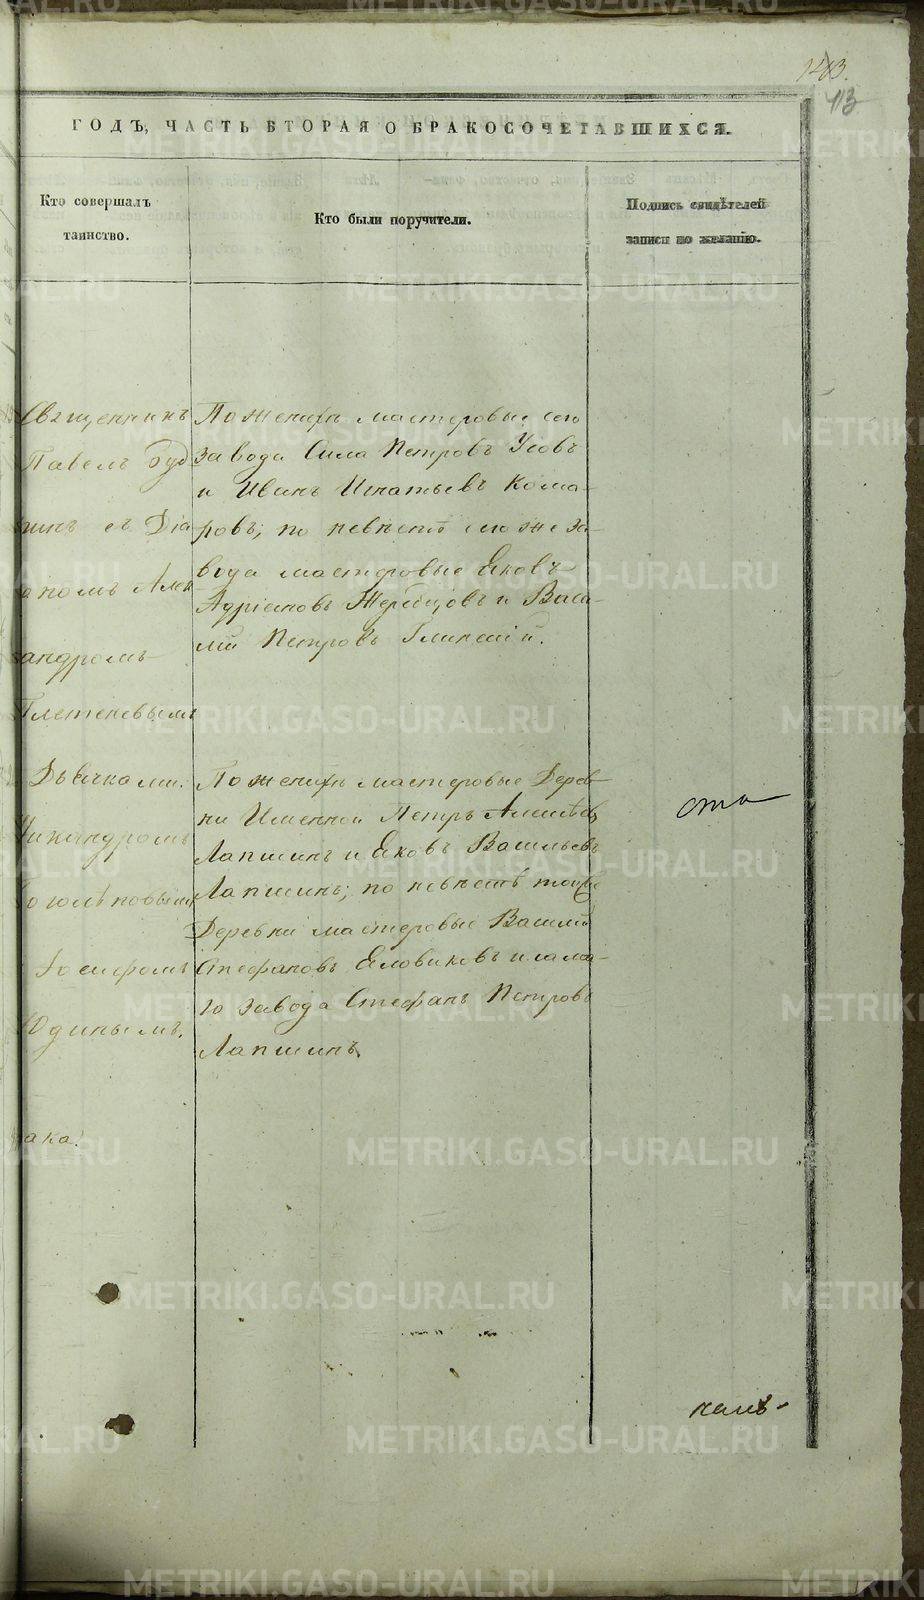 143.
113
ГОДЪ, ЧАСТЬ ВТОРАЯ О БРАКОСОЧЕТАВШИХСЯ.
Кто совершалъ
таинство.
Кто были поручители.
Подпись свидѣтелей
записи по желанію.
Священникъ
Павелъ Буд
съ Діа
кономъ Алек
андромъ
Плетеневымъ
Дьячками:
Никандромъ
Іосифомъ
Юдинымъ.
По женихѣ мастеровые сего
завода Сила Петровъ Усовъ
и Иванъ Игнатьевъ Кома-
ровъ; по невѣстѣ сего же за-
вода мастеровые Яковъ
Адріановъ Жеребцовъ и Васи-
лій Петровъ Глинскій.
По женихѣ мастеровые Дерев-
ни Именной Петръ Алексѣевъ
Лапшинъ и Яковъ Васильевъ
Лапшинъ; по невѣстѣ тойже
Деревни мастеровые Василій
Стефановъ Еловиковъ и сама-
го завода Стефанъ Петровъ
Лапшинъ.
ака.
METRIKI.GASO-URAL.RU